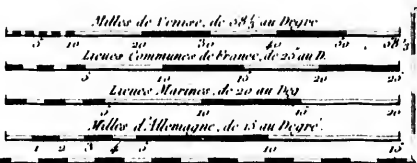 Milles de Venise, de 58⅓ au Degré
5 10 20 30 40 50 58⅓
Lieues Communes de France, de 25 au D.
5 10 15 20 25
Lieues Marines, de 20 au Deg
5 10 15 20
Milles d'Allemagne, de 15 au Degré.
1 2 3 4 5 10 15